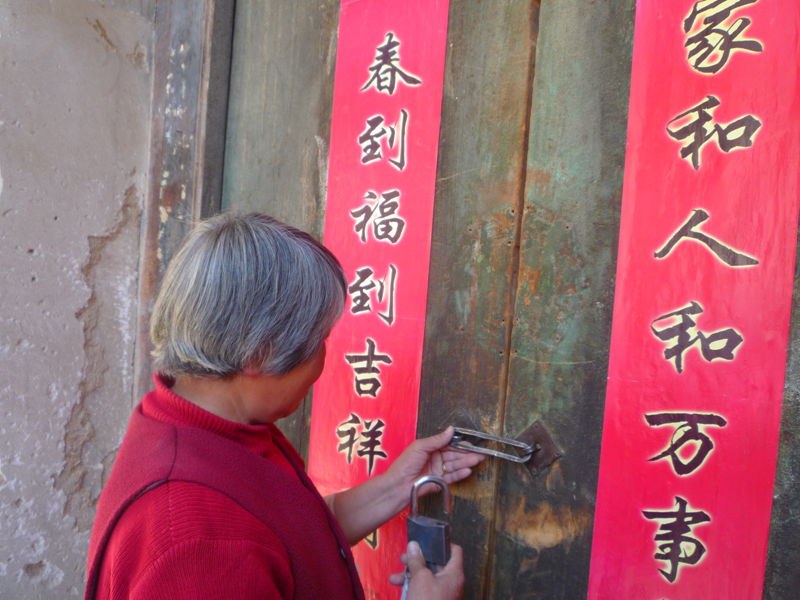 家和人和万事
春到福到吉祥